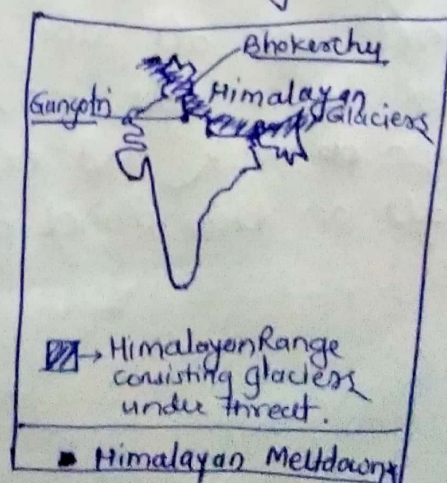 Bhokerchy
Gangotri
Himalayan
Glaciers
→ Himalayan Range
consisting glaciers
under threat.
Himalayan Meltdown